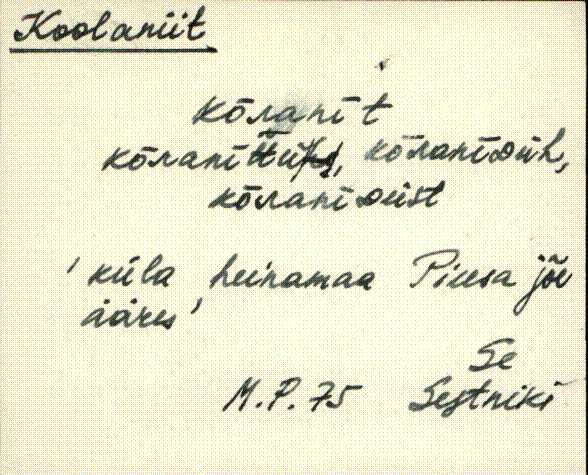 Koolaniit
kōranīt
kōranī kōranīdüh,
kōranīdüst
'küla heinamaa Piusa jõe
ääres'
Se
M.P. 75 Sestniki